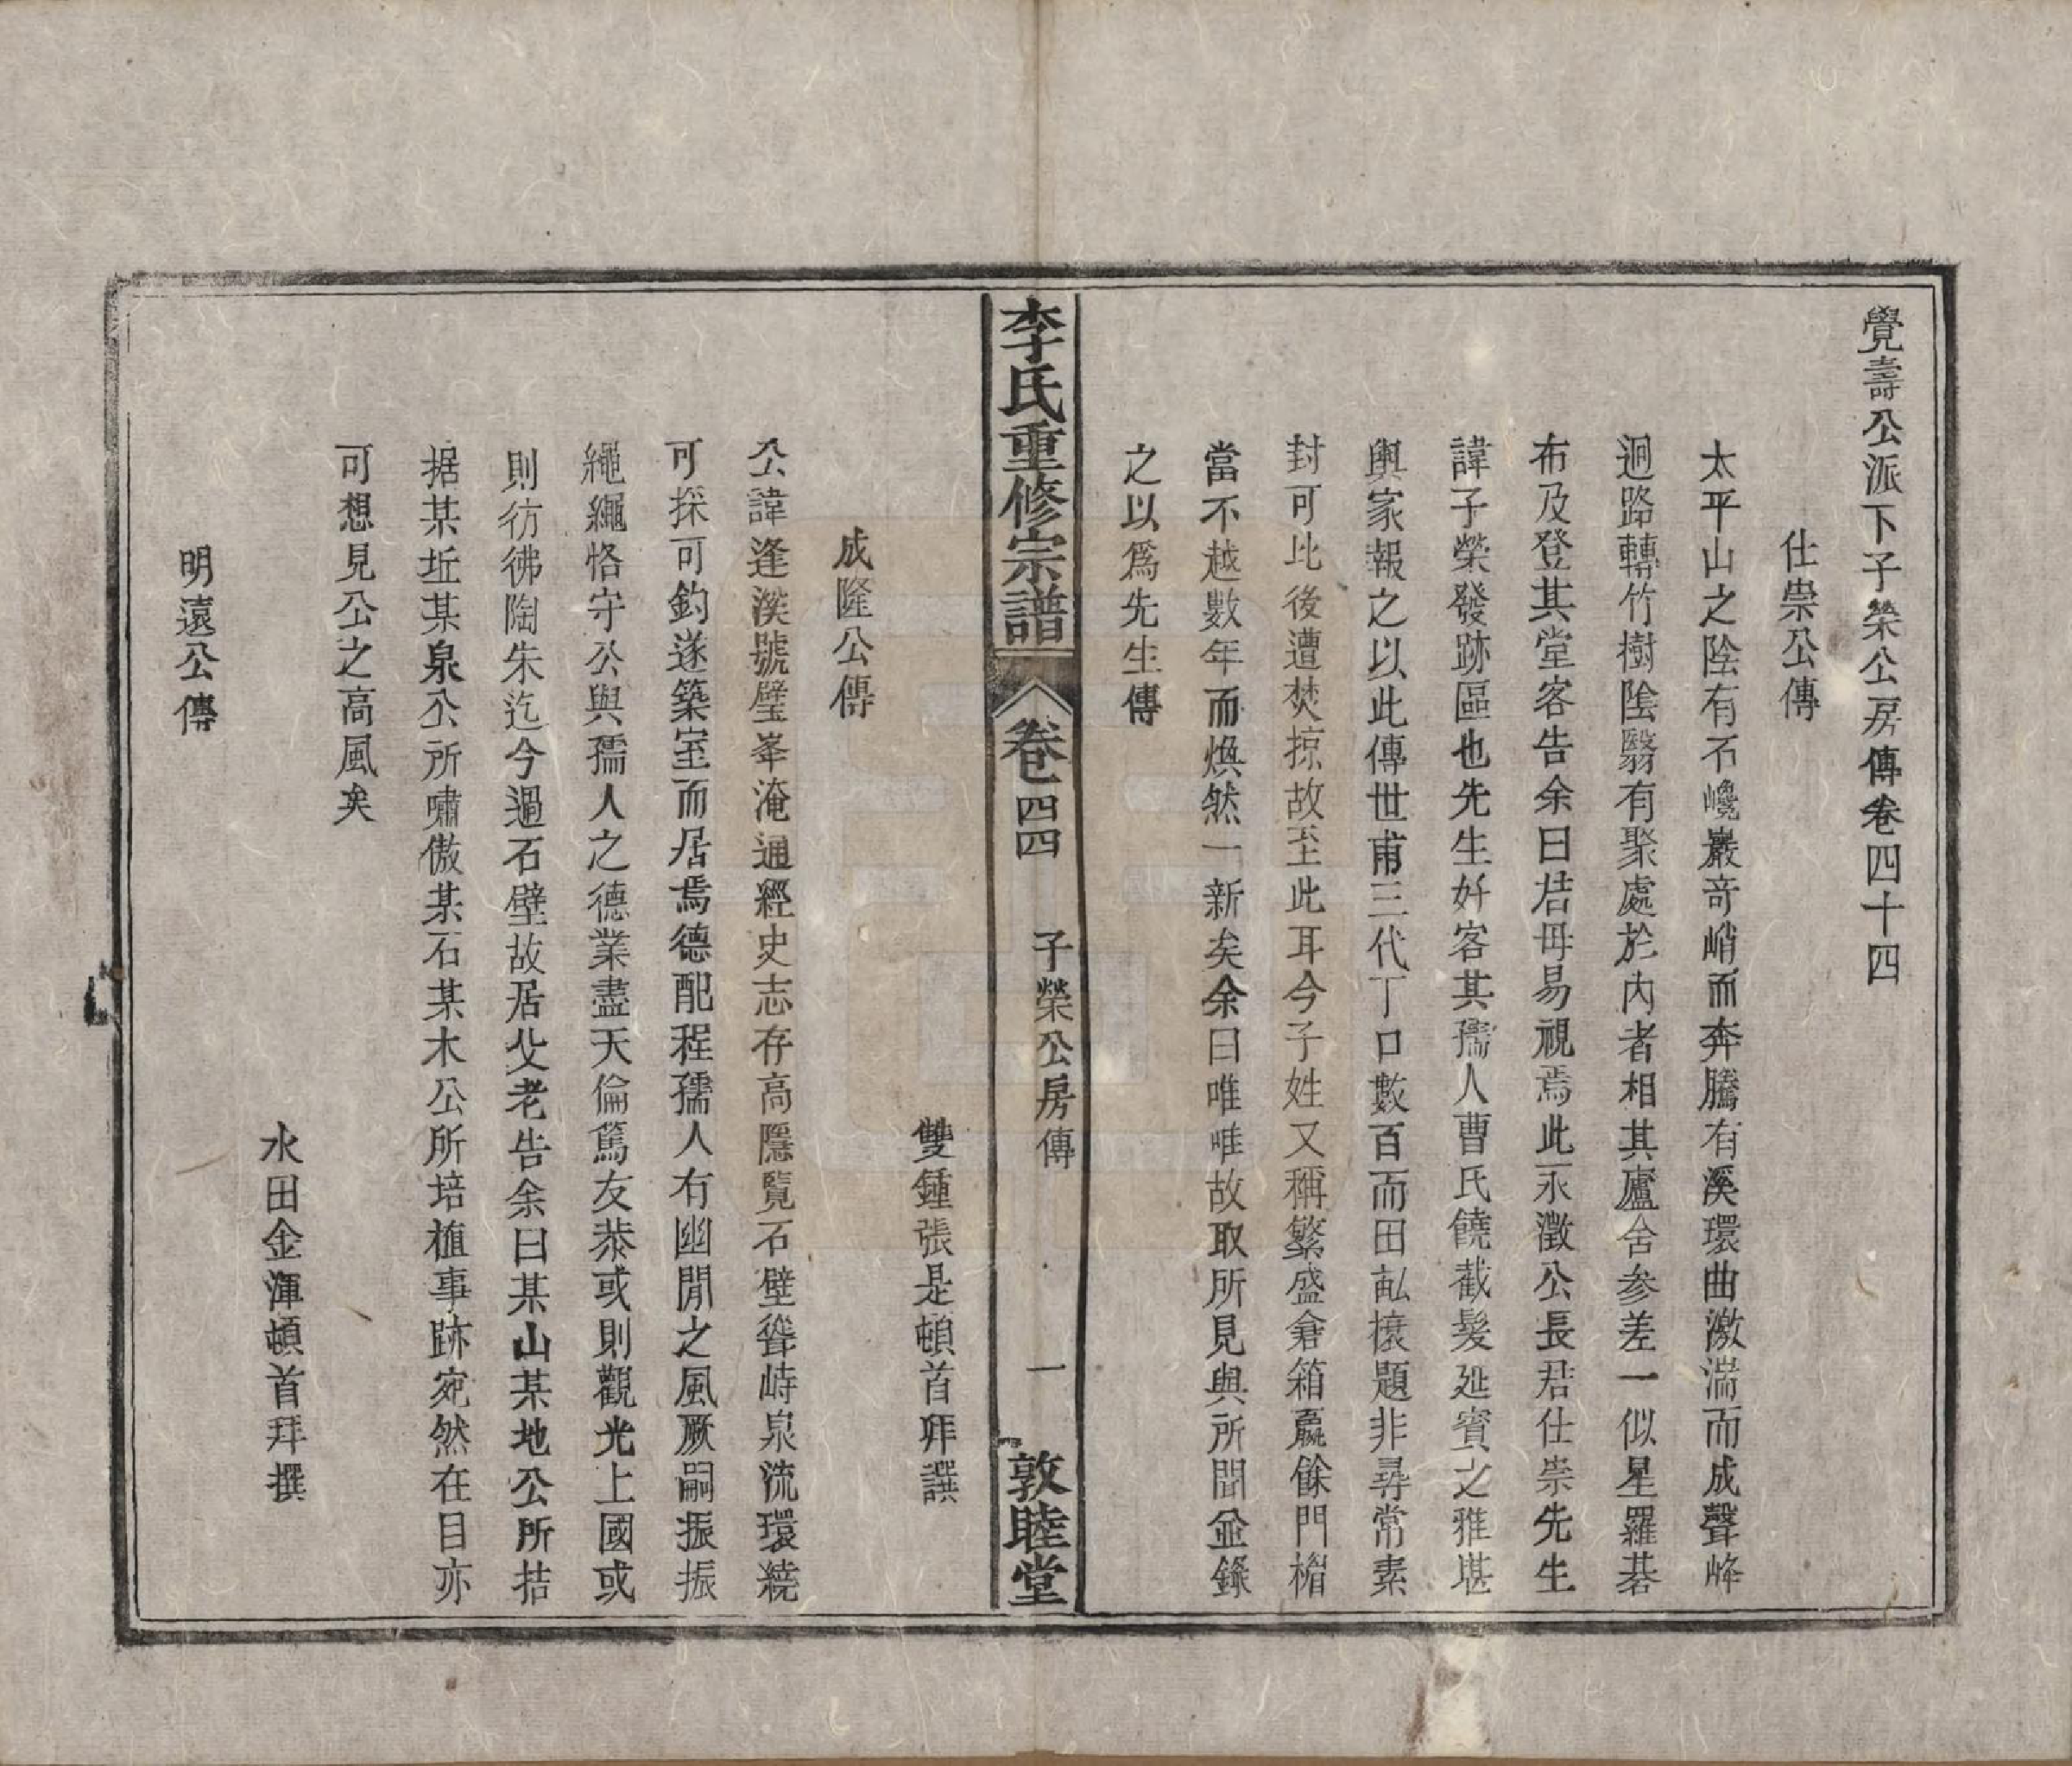 覺壽公派下子榮公房傳卷四十四
仕崇公傳
太平山之陰有石巉巖奇峭而奔騰有溪環曲激湍而成聲峰
迴路轉竹樹陰翳有聚處於內者相其廬舍參差一似星羅碁
布及登其堂客告余曰君毋易視焉此永澂公長君仕崇先生
諱子榮發跡區也先生好客其孺人曹氏饒截髮延賓之雅堪
與家報之以此傳世甫三代丁口數百而田畝榱題非尋常素
封可比後遭焚掠故至此耳今子姓又稱繁盛倉箱羸餘門楣
當不越數年而煥然一新矣余曰唯唯故取所見與所聞並錄
之以爲先生傳
李氏重修宗譜
卷四四
子榮公房傳
一
敦睦堂
雙鍾張是頓首拜譔
成隆公傳
公諱逢溪號璧峯淹通經史志存高隱覽石壁聳峙泉流環繞
可採可釣遂築室而居焉德配程孺人有幽閒之風厥嗣振振
繩繩恪守公與孺人之德業盡天倫篤友恭或則觀光上國或
則彷彿陶朱迄今過石壁故居父老告余曰某山某地公所拮
据某坵某泉公所嘯傲某石某木公所培植事跡宛然在目亦
可想見公之高風矣
水田金渾頓首拜撰
明遠公傳